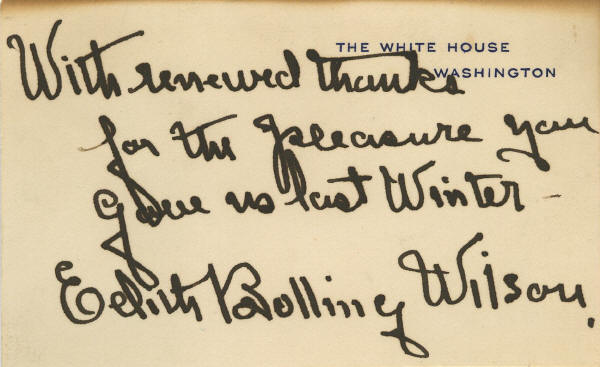 THE WHITE HOUSE
WASHINGTON
With renewed thanks
for the pleasure you
gave us last Winter -
Edith Bolling Wilson.